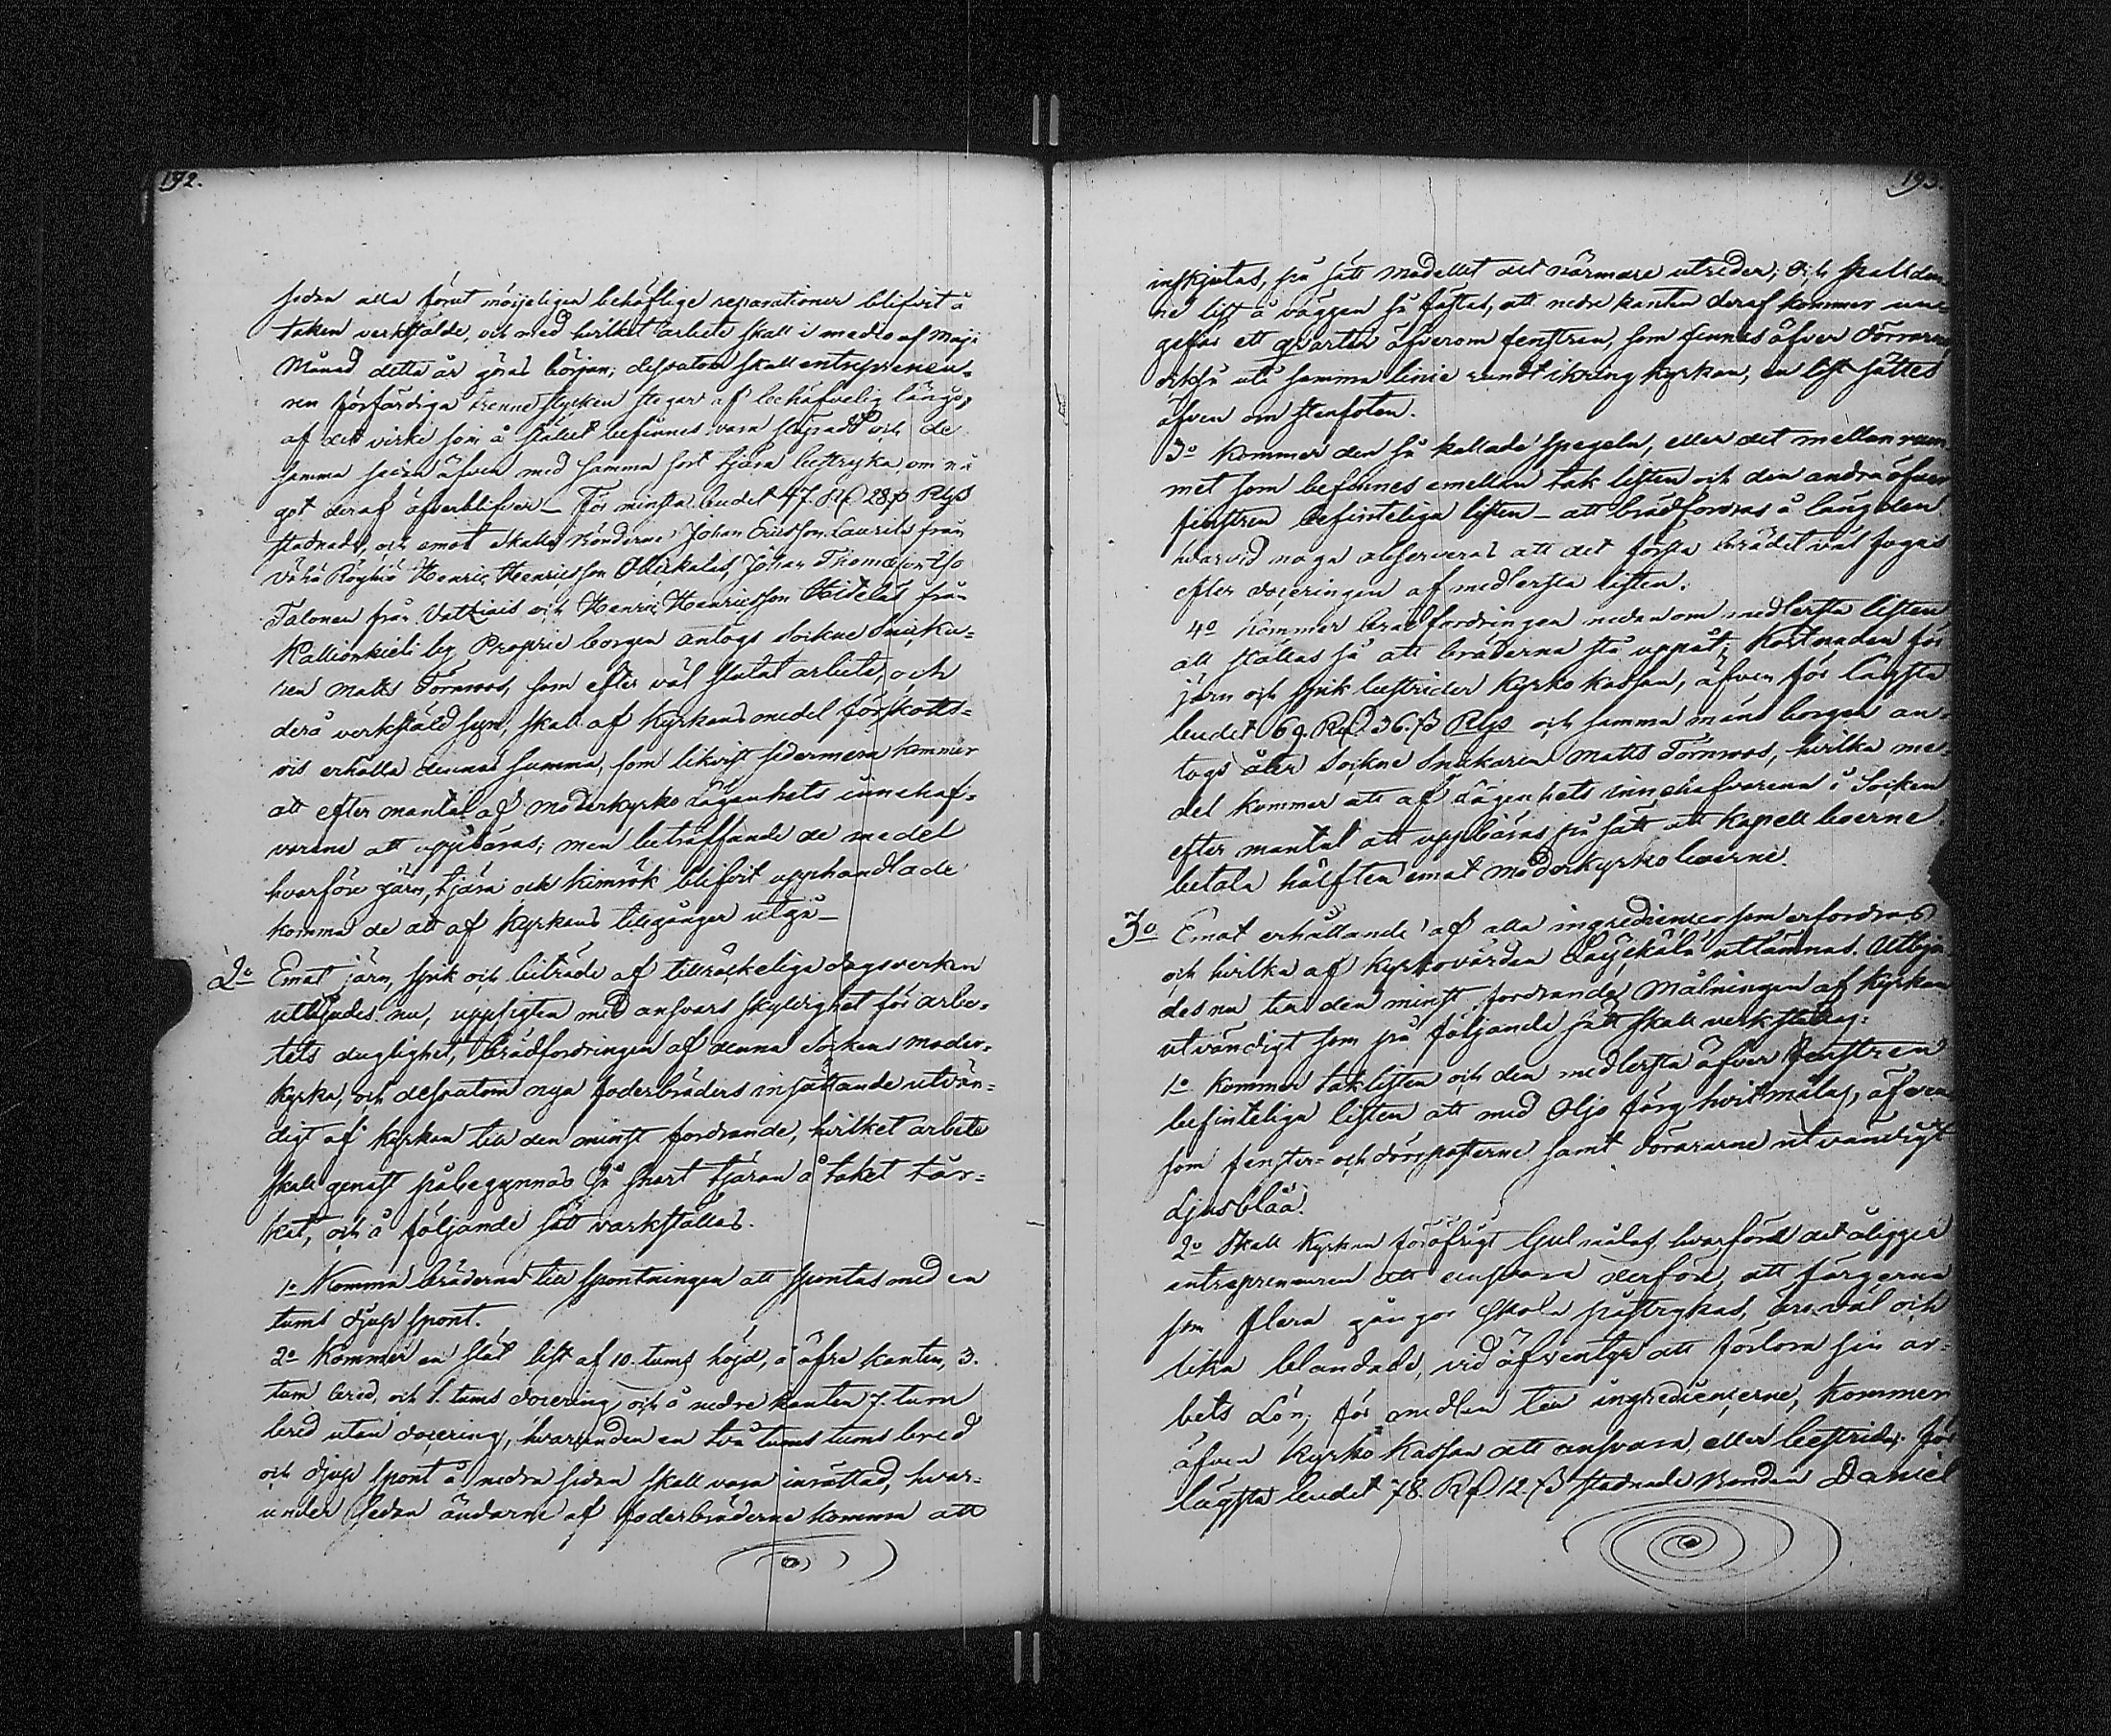 192.
sedan alla förut möijeligen behöflige reparationer blifvit å
taken verkstälde, och med hvilket arbete skall i medlo af Maji
Månad detta år göras början; dessutom skall entrepreneu-
ren förfärdiga trenne stycken stegar af behöfvelig längd,
af det virke som å stället befinnes vara och de
samma sedan äfven med samma sort tjära bestryka, om nå
got deraf öfverblifver – För minsta budet 47. Rd 28 ß Rgs
stadnade, och emot skalle Bönderne Johan Ericsson Laurila från
Vähä Röyhiö Henric Henricsson Johan Thomasson Iso
Talonen från och Henric Henricsson Heikelas från
Kallionkieli by Proprie borgen antogs Sockne Snicka-
ren Matts Törnroos, som efter väl slutat arbete, och
derå verkstäld syn, skall af Kyrkans medel förskotts-
vis erhålla denna summa, som likvist sedermera kommer
att efter mantal af moderkyrko Lägenhets innehaf-
varene att uppbäras; men beträffande de medel
hvarföre järn, tjära och kimrök blifvit upphandlade
komma de att af Kyrkans tillgångar utgå –
2o Emot järn, spik och biträde af tillräckeliga dagsverken
utbjudes nu, uppsigten med ansvars skyldighet för arbe-
tets duglighet, brädfodringen af denna Sockens moder-
kyrka, och dessutom nya foderbräders insättande utvän-
digt af Kyrkan till den minst fordrande, hvilket arbete
skall genast påbegynnas så snart tjäran å taket tor-
kat, och å följande sätt varkställas.
1o Komma bräderna till spontningen att spontas med en
tums djup spont.
2o Kommer en slät list af 10. tums höjd, å öfre kanten, 3.
tum bred, och 1. tums docering och å nedre kanten 7. tum
bred utan docering, hvarunden en två tums tums bred
och djup spont å nedra sidan skall vara inrättad, hvar-
under sedan ändarne af foderbräderne komma att
193.
inskjutas, på sätt modellet det närmare utreder; Och skall den-
ne list å väggen så fästas, att nedre kanten deraf kommer un-
gefär ett qvarter öfverom fenstren, som finnes öfver Dörrarne,
också uti samma linie rundt ikring Kyrkan, en list sättes
äfven om stenfoten.
3o Kommer den så kallade Spegeln, eller det mellanrum
met som befinnes emellan tak listen och den andra öfver
fenstren befinteliga listen – att brädfodras å längden
hvarvid noga observeras att det första brädet väl fogas
efter doceringen af medlersta listen.
4o Kommer brädfodringen nedanom medlersta listen
att ställas så att bräderna stå uppåt; Kostnaden för
järn och spik bestrider Kyrko kassan, äfven för lägsta
budet 69. Rd 36. ß Rgs och samma mäns borgen an-
togs åter Sockne Snickaren Matts Törnroos, hvilka me-
del kommer att af Lägenhets innehafvarena i Socken
efter mantal att uppbäras på sätt att Kapell boerne
betala hälften emot moderkyrko boerne.
3o Emot erhållande af alla ingredienser som erfordras
och hvilka af Kyrkovärden utlämnas. Utbju-
des nu till den minst fordrande, Målningen af Kyrkan
utvändigt som på följande sätt skall verkställas:
1o Kommer taklisten och den medlersta öfver fenstren
befinteliga listen att med Oljo färg hvitmålas, äfven
som fenster- och dörrposterne samt dörrarne utvändigt
ljusblåa.
2o Skall Kyrkan föröfrigt Gul målas, hvarföre det åligger
entrepreneuren att ansvara derföre, att färgerna
som flera gångor skola påstrykas, äro väl och
lika blandade, vid äfventyr att förlora sin ar-
bets Lön; för medlen till ingredienserne, kommer
äfven Kyrko Kassan att ansvara, eller bestrida. För
lägsta budet 78. Rd. 12. ß stadnade Bonden Daniel